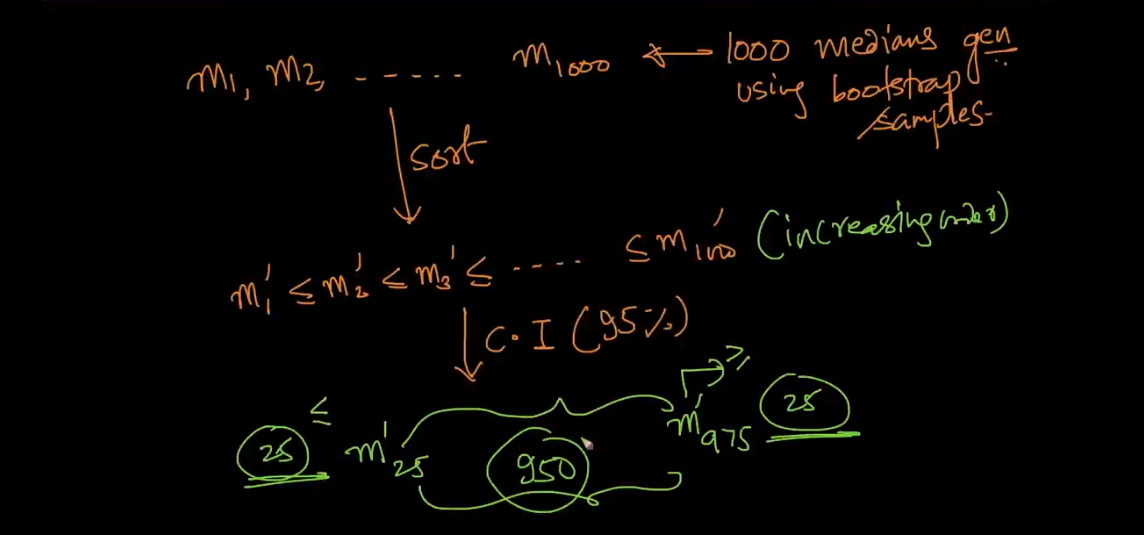 m₁, m₂, ------ m₁₀₀₀ ← 1000 medians gen
using bootstrap
samples-
sort
m₁' ≤ m₂' ≤ m₃' ≤ ---- ≤ m₁₀₀₀' (increasing order)
C.I (95%)
25 ≤ m'₂₅ 950 m'₉₇₅ ≥ 25